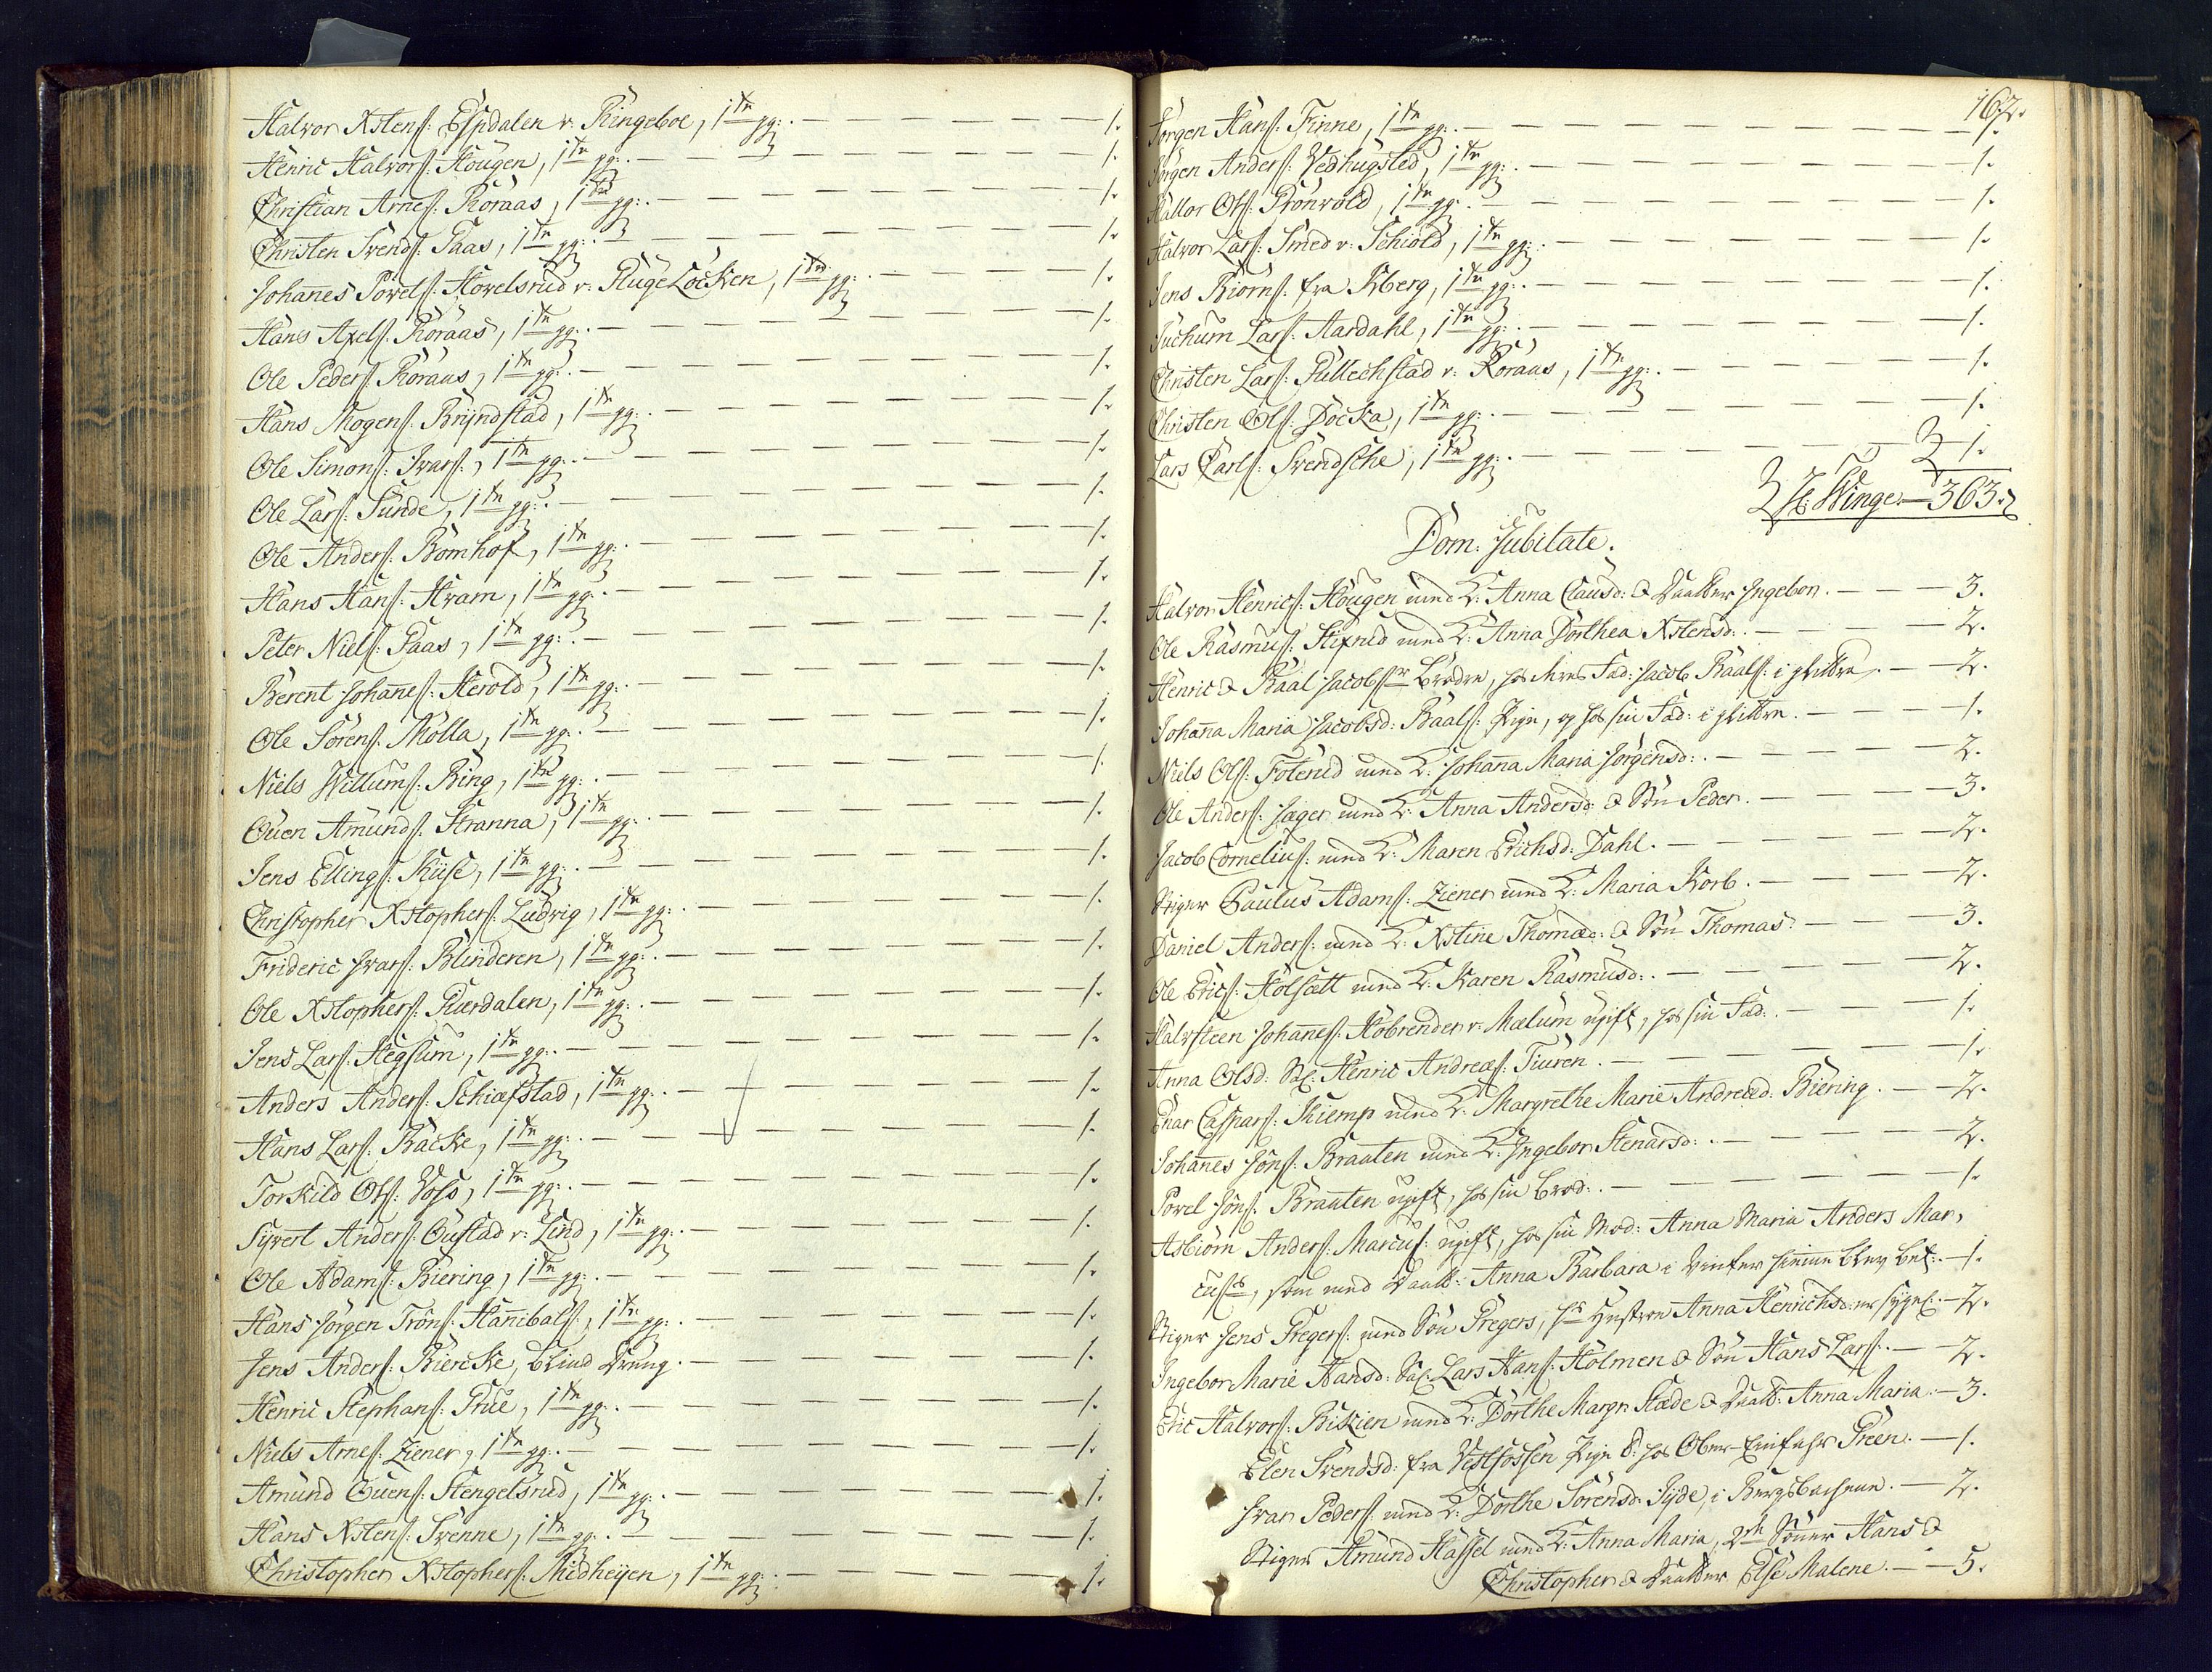 Halvor Xstens: Espdalen v. Ringeboe, 1ste gg: — 1.
Henric Halvors: Hougen, 1ste gg: — 1.
Christian Arnes: Röraas, 1ste gg: — 1.
Christen Svends: Paas, 1ste gg: — 1.
Johannes Povels: Hovelsrud v. PlugeLöcken, 1ste gg: — 1.
Hans Axels: Röraas, 1ste gg: — 1.
Ole Peders: Röraas, 1ste gg: — 1.
Hans Mogens: Bryndstad, 1ste gg: — 1.
Ole Simons: Ivars:, 1ste gg: — 1.
Ole Lars: Sunde, 1ste gg: — 1.
Ole Anders: Bomhof, 1ste gg: — 1.
Hans Hans: Hvam, 1ste gg: — 1.
Peter Niels: Paas, 1ste gg: — 1.
Berent Johannes: Herold, 1ste gg: — 1.
Ole Sörens: Molla, 1ste gg: — 1.
Niels Willums: Ring, 1ste gg: — 1.
Ouen Amunds: Stranna, 1ste gg: — 1.
Jens Ellings: Kiise, 1ste gg: — 1.
Christopher Xstophers: Ludvig, 1ste gg: — 1.
Frideric Ivars: Blinderen, 1ste gg: — 1.
Ole Xstophers: Gurdalen, 1ste gg: — 1.
Jens Lars: Hegsum, 1ste gg: — 1.
Anders Anders: Schiefstad, 1ste gg: — 1.
Hans Lars: Backe, 1ste gg: — 1.
Torkild Ols: Voss, 1ste gg: — 1.
Syvert Anders: Oustad v. Lind, 1ste gg: — 1.
Ole Adams: Biering, 1ste gg: — 1.
Hans Jörgen Tröns: Hannibals:, 1ste gg: — 1.
Jens Anders: Biercke, blind Dreng. — 1.
Henric Stephans: Prue, 1ste gg: — 1.
Niels Arnes: Ziener, 1ste gg: — 1.
Amund Ouens: Stengelsrud, 1ste gg: — 1.
Hans Xstens: Svenne, 1ste gg: — 1.
Christopher Xstophers: Midheyen, 1ste gg: — 1.
162.
Jörgen Hans: Finne, 1ste gg: — 1.
Jörgen Anders: Vedhugsted, 1ste gg: — 1.
Hallor Ols: Grönvold, 1ste gg: — 1.
Halvor Lars: Smed v. Schiold, 1ste gg: — 1.
Jens Biörns: fra Kberg, 1ste gg: — 1.
Juchum Lars: Aardahl, 1ste gg: — 1.
Christen Lars: Gullechstad v. Röraas, 1ste gg: — 1.
Christen Ols: Docka, 1ste gg: — 1.
Lars Carls: Svendsche, 1ste gg: — 1.
H: Winge — 363.
Dom: Jubilate.
Halvor Henrics: Hougen med K: Anna Clausd: & Daatter Ingebor. — 3.
Ole Rasmus: Stixrud med K: Anna Dorthea Xstensd: — 2.
Henric & Baal Jacobs: Brödre, hos deres Fad: Jacob Baals: i Hütten. — 2.
Johanna Maria Jacobsd: Baals: Pige, og hos sin Fad: i Hütten. — 1.
Niels Ols: Foterud med K: Johana Maria Jörgensd: — 2.
Ole Anders: Jæger med K: Anna Andersd: & Sön Peder. — 3.
Jacob Cornelius: med K: Maren Erichsd: Dahl. — 2.
Stiger Paulus Adams: Ziener med K: Maria Korb. — 2.
Daniel Anders: med K: Xstine Thomæd: & Sön Thomas — 3.
Ole Erics: Holsætt med K: Karen Rasmusd: — 2.
Halvsteen Johannes: Hobrender v. Mælum ugift, hos sin Fad: — 1.
Anna Olsd: Sal: Henric Andreas: Tiuren. — 1.
Enar Caspars: Kiemp med K: Margrethe Marie Andread: Biering. — 2.
Johannes Jöns: Braaten med K: Ingebor Stenarsd: — 2.
Povel Jöns: Braaten ugift, hos sin Brod: — 1.
Asbiörn Anders: Marcus: ugift, hos sin Mod: Anna Maria Anders Mar,
cus:, som med Daatt: Anna Barbara i Vinter hiemme blev bet: — 1.
Stiger Jens Gregers: med Sön Gregers, hs Hustrue Anna Henrichsd: er sygel: — 2.
Ingebor Marie Hansd: Sal: Lars Hans: Holmen & Sön Hans Lars: — 2.
Eric Halvors: Biskien med K: Dorthe Margr: Stæde & Daatt: Anna Maria. — 3.
Elen Svendsd: fra Vestfossen Pige t: hos Ober-Einfahr Green. — 1.
Ivar Peders: med K: Dorthe Sörensd: Syde, i Bergsbachene. — 2.
Stiger Amund Hassel med K: Anna Maria, 2de Sönner Hans &
Christopher & Daatter Else Malene. — 5.